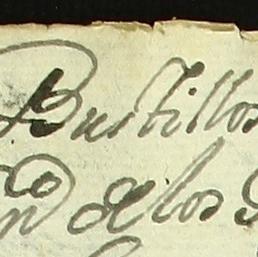 Bustillos
de los